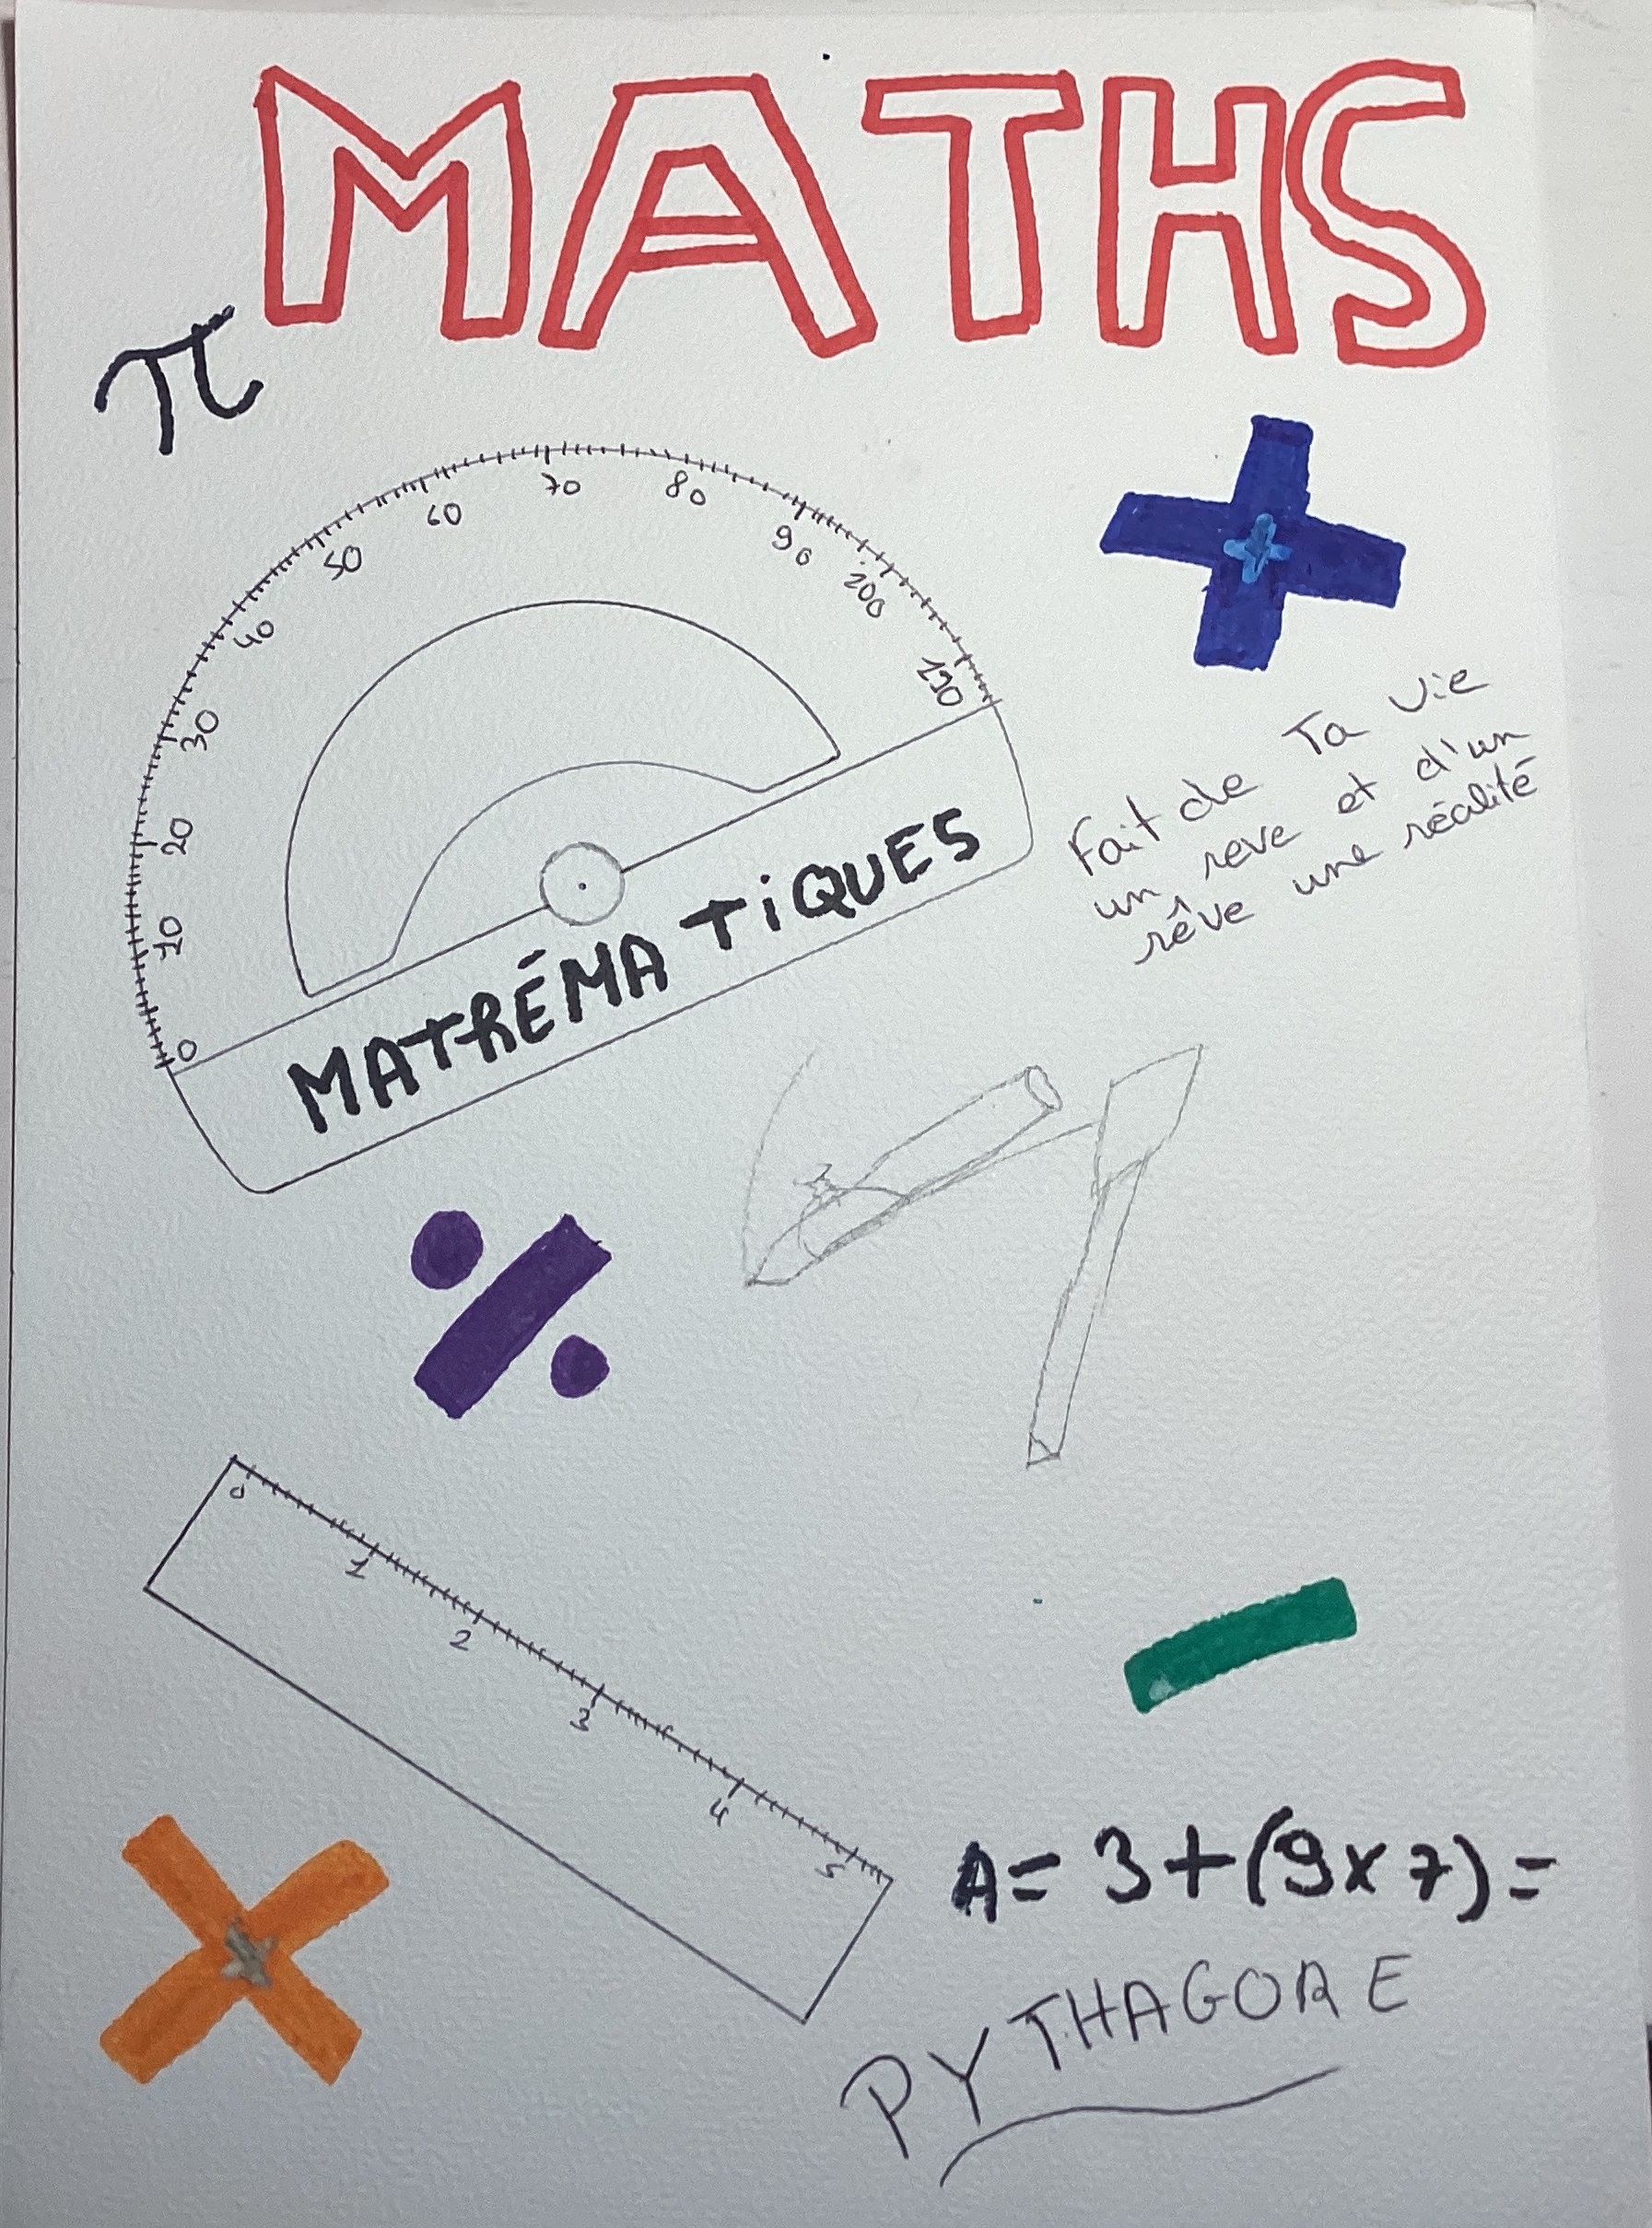 MATHS
π
0 10 20 30 40 50 60 70 80 90 100 110
MATRÉMATIQUES
Fait de Ta vie
un reve et d'un
rêve une réalité
0 1 2 3 4 5
A= 3+(9x7)=
PYTHAGORE